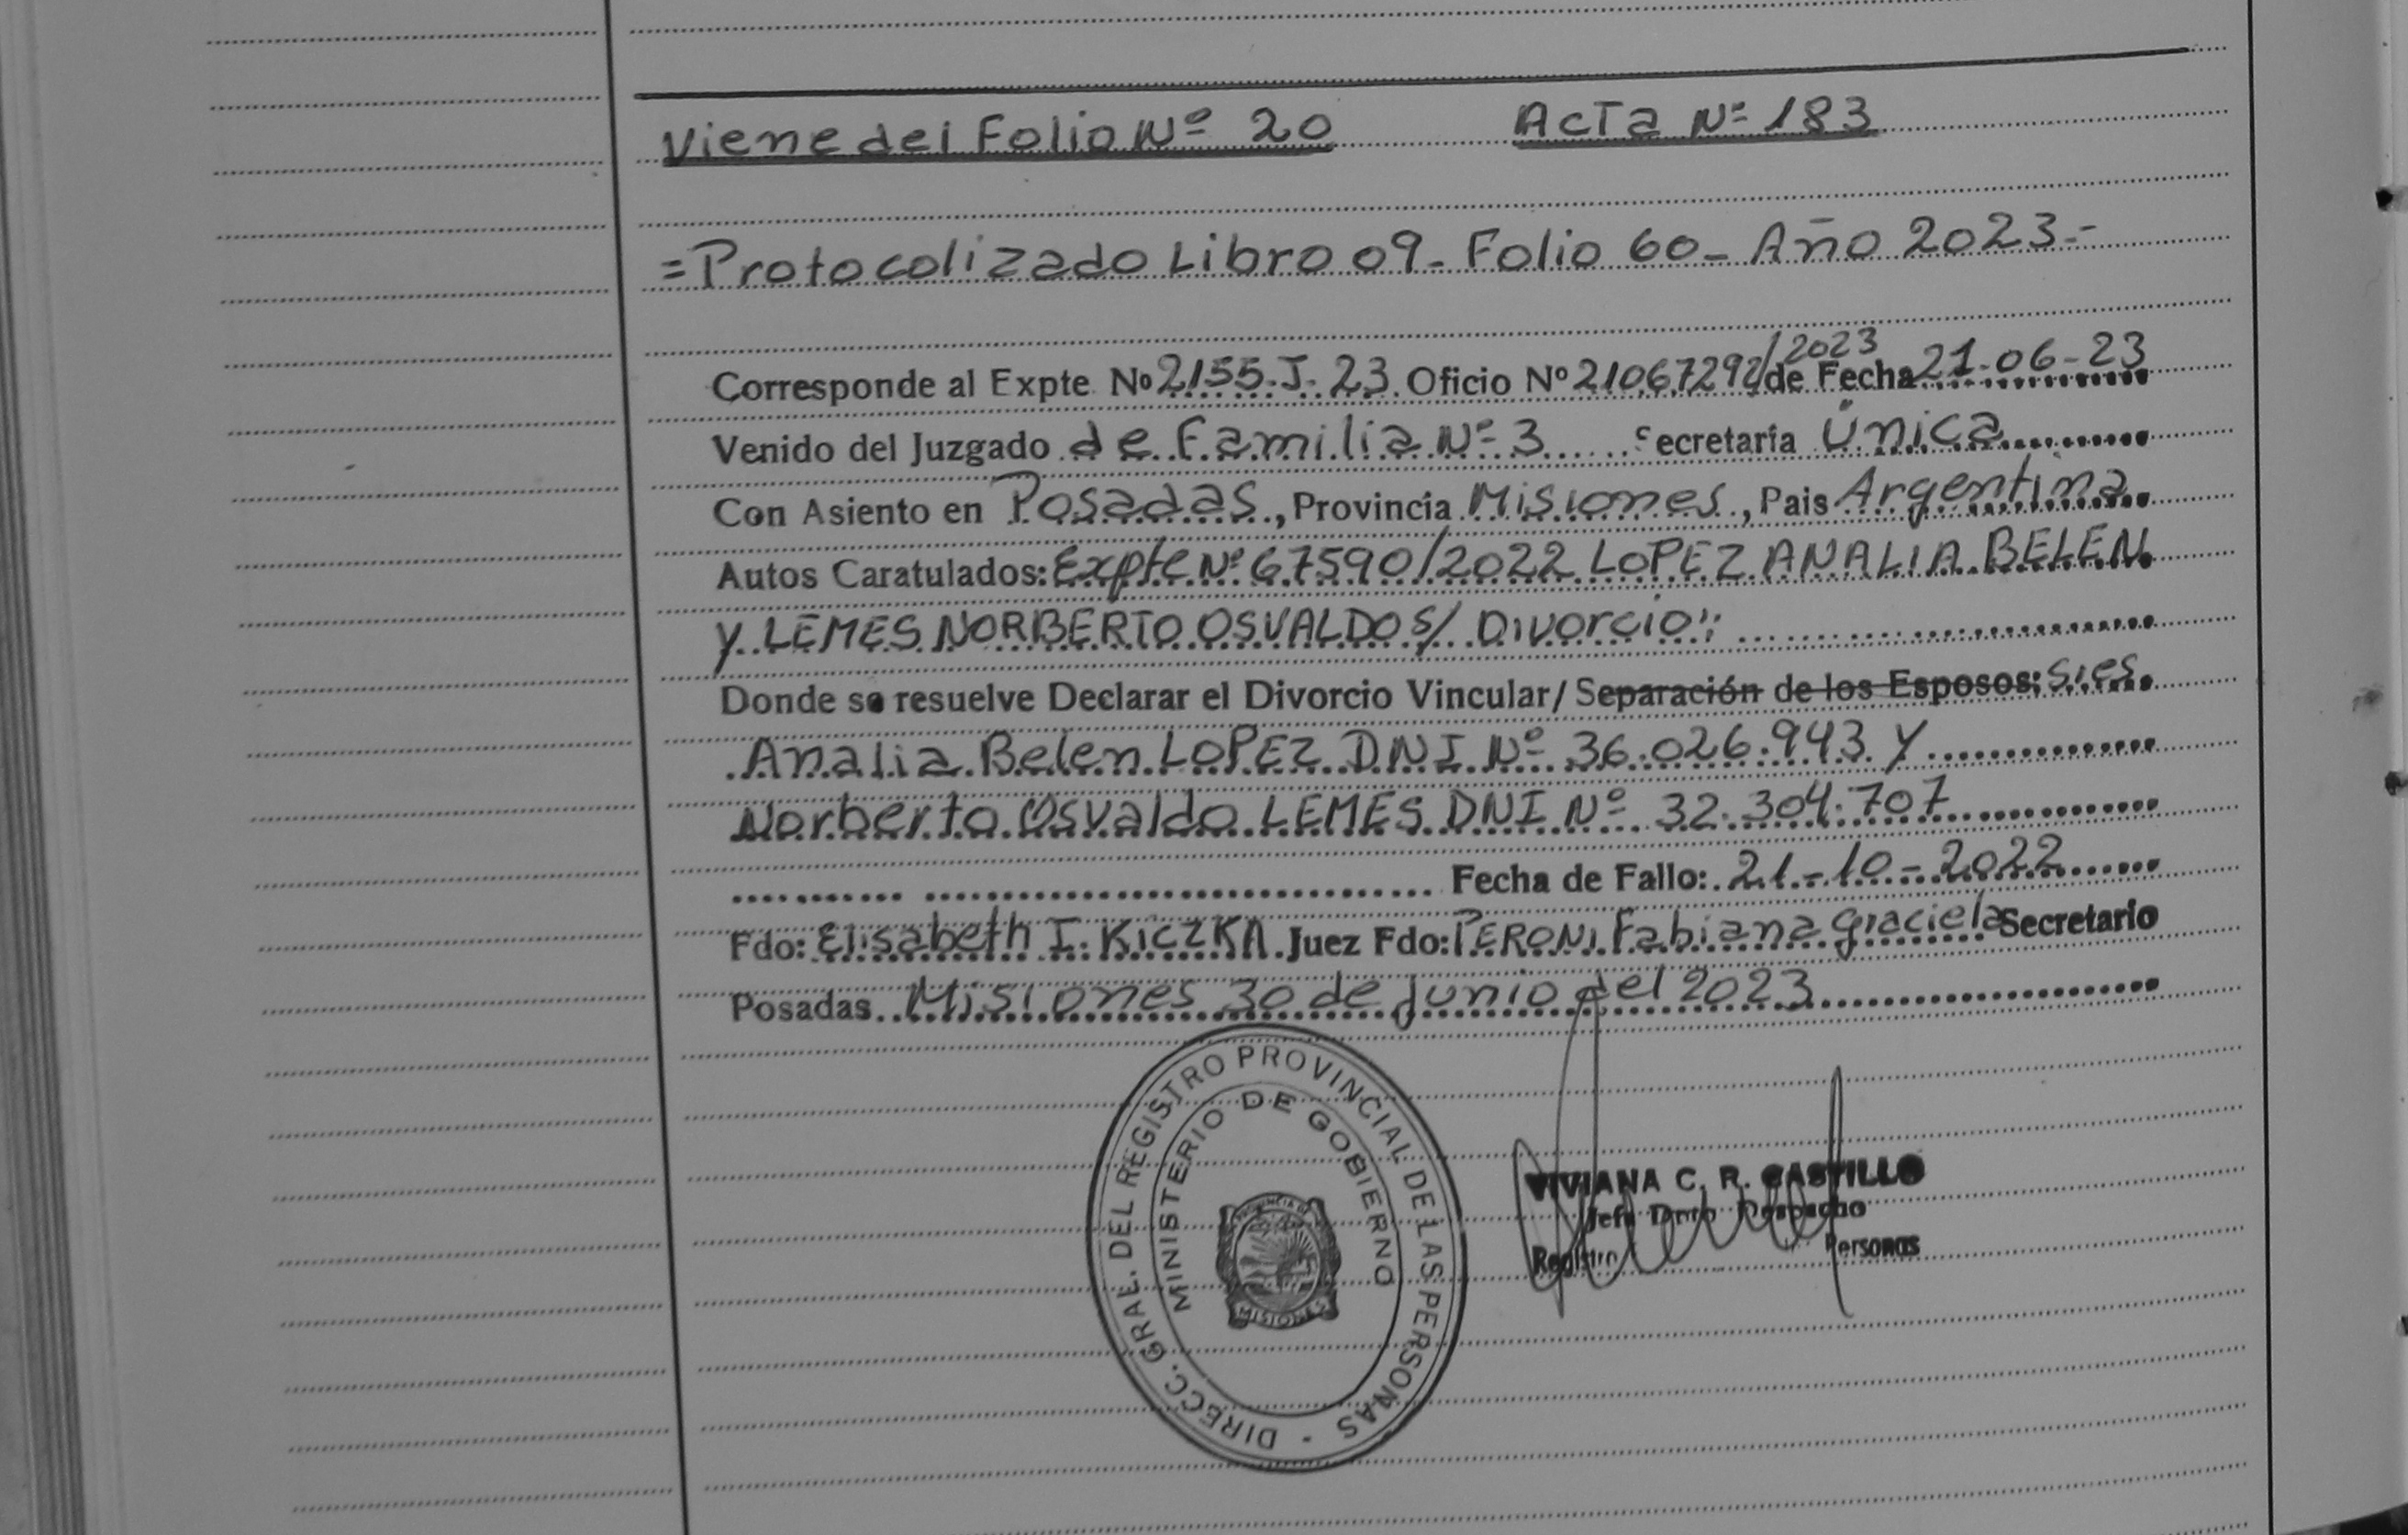 Viene del Folio Nº 20 Acta Nº 183
=Protocolizado Libro 09- Folio 60- Año 2023.-
Corresponde al Expte. Nº 2155-J-23 Oficio Nº 21067292/2023 de Fecha 21-06-23
Venido del Juzgado de Familia Nº 3 Secretaría Única
Con Asiento en Posadas, Provincia Misiones, Pais Argentina
Autos Caratulados: Expte Nº 67590/2022 LOPEZ ANALIA BELEN
y LEMES NORBERTO OSVALDO S/ Divorcio"
Donde se resuelve Declarar el Divorcio Vincular/ Separación de los Esposos: Sres.
Analia Belen LOPEZ DNI Nº 36.026.943 y
Norberto Osvaldo LEMES DNI Nº 32.304.707
Fecha de Fallo: 21-10-2022
Fdo: Elisabeth I. KiCZKA Juez Fdo: PERONI Fabiana Graciela Secretario
Posadas Misiones 30 de junio del 2023
DIRECC. GRAL. DEL REGISTRO PROVINCIAL DE LAS PERSONAS -
MINISTERIO DE GOBIERNO
MISIONES
VIVIANA C. R. CASTILLO
Jefe Dpto Despacho
Registro Personas